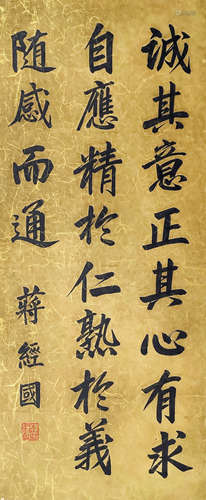 誠其意正其心有求
自應精於仁熟於義
随感而通
蔣經國